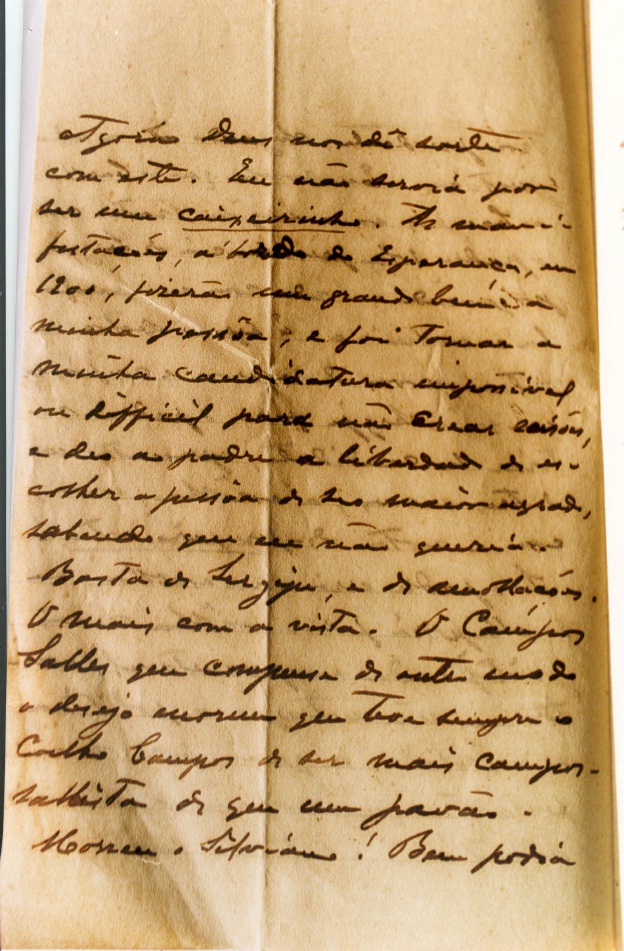 Agora Deus nos dê sorte
com este. Eu não servia por
ser um caipirinho. As mani-
festações, a bordo do Esperança, em
1900, fizerão um grande bem á
minha pessôa; e foi tornar a
minha candidatura impossivel
ou difficil para não crear scisões,
e deo ao padre a liberdade de es-
colher a pessôa de seo maior agrado,
sabendo que eu não queria.
Basta de Sergipe, e de amollações.
O mais com a vista. O Campos
Salles que compense de outro modo
o desejo enorme que teve sempre o
Coelho Campos de ser mais campos-
sallista do que um pavão.
Morreu o Silviano! Bem podia